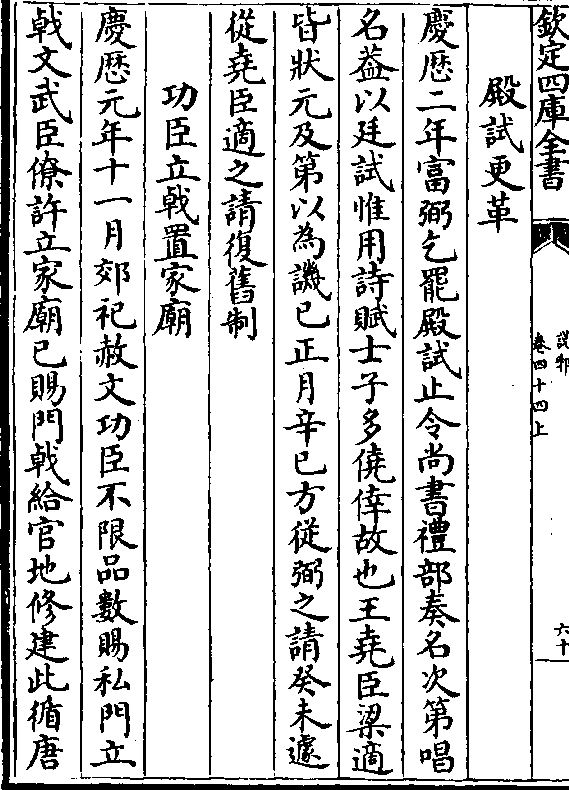 欽定四庫全書
說郛
卷四十四上
六十
殿試更革
慶歴二年富弼乞罷殿試止令尚書禮部奏名次第唱
名葢以廷試惟用詩賦士子多僥倖故也王堯臣梁適
皆狀元及第以為譏已正月辛巳方從弼之請癸未遽
從堯臣適之請復舊制
功臣立㦸置家廟
慶歴元年十一月郊祀赦文功臣不限品數賜私門立
㦸文武臣僚許立家廟已賜門㦸給官地修建此循唐